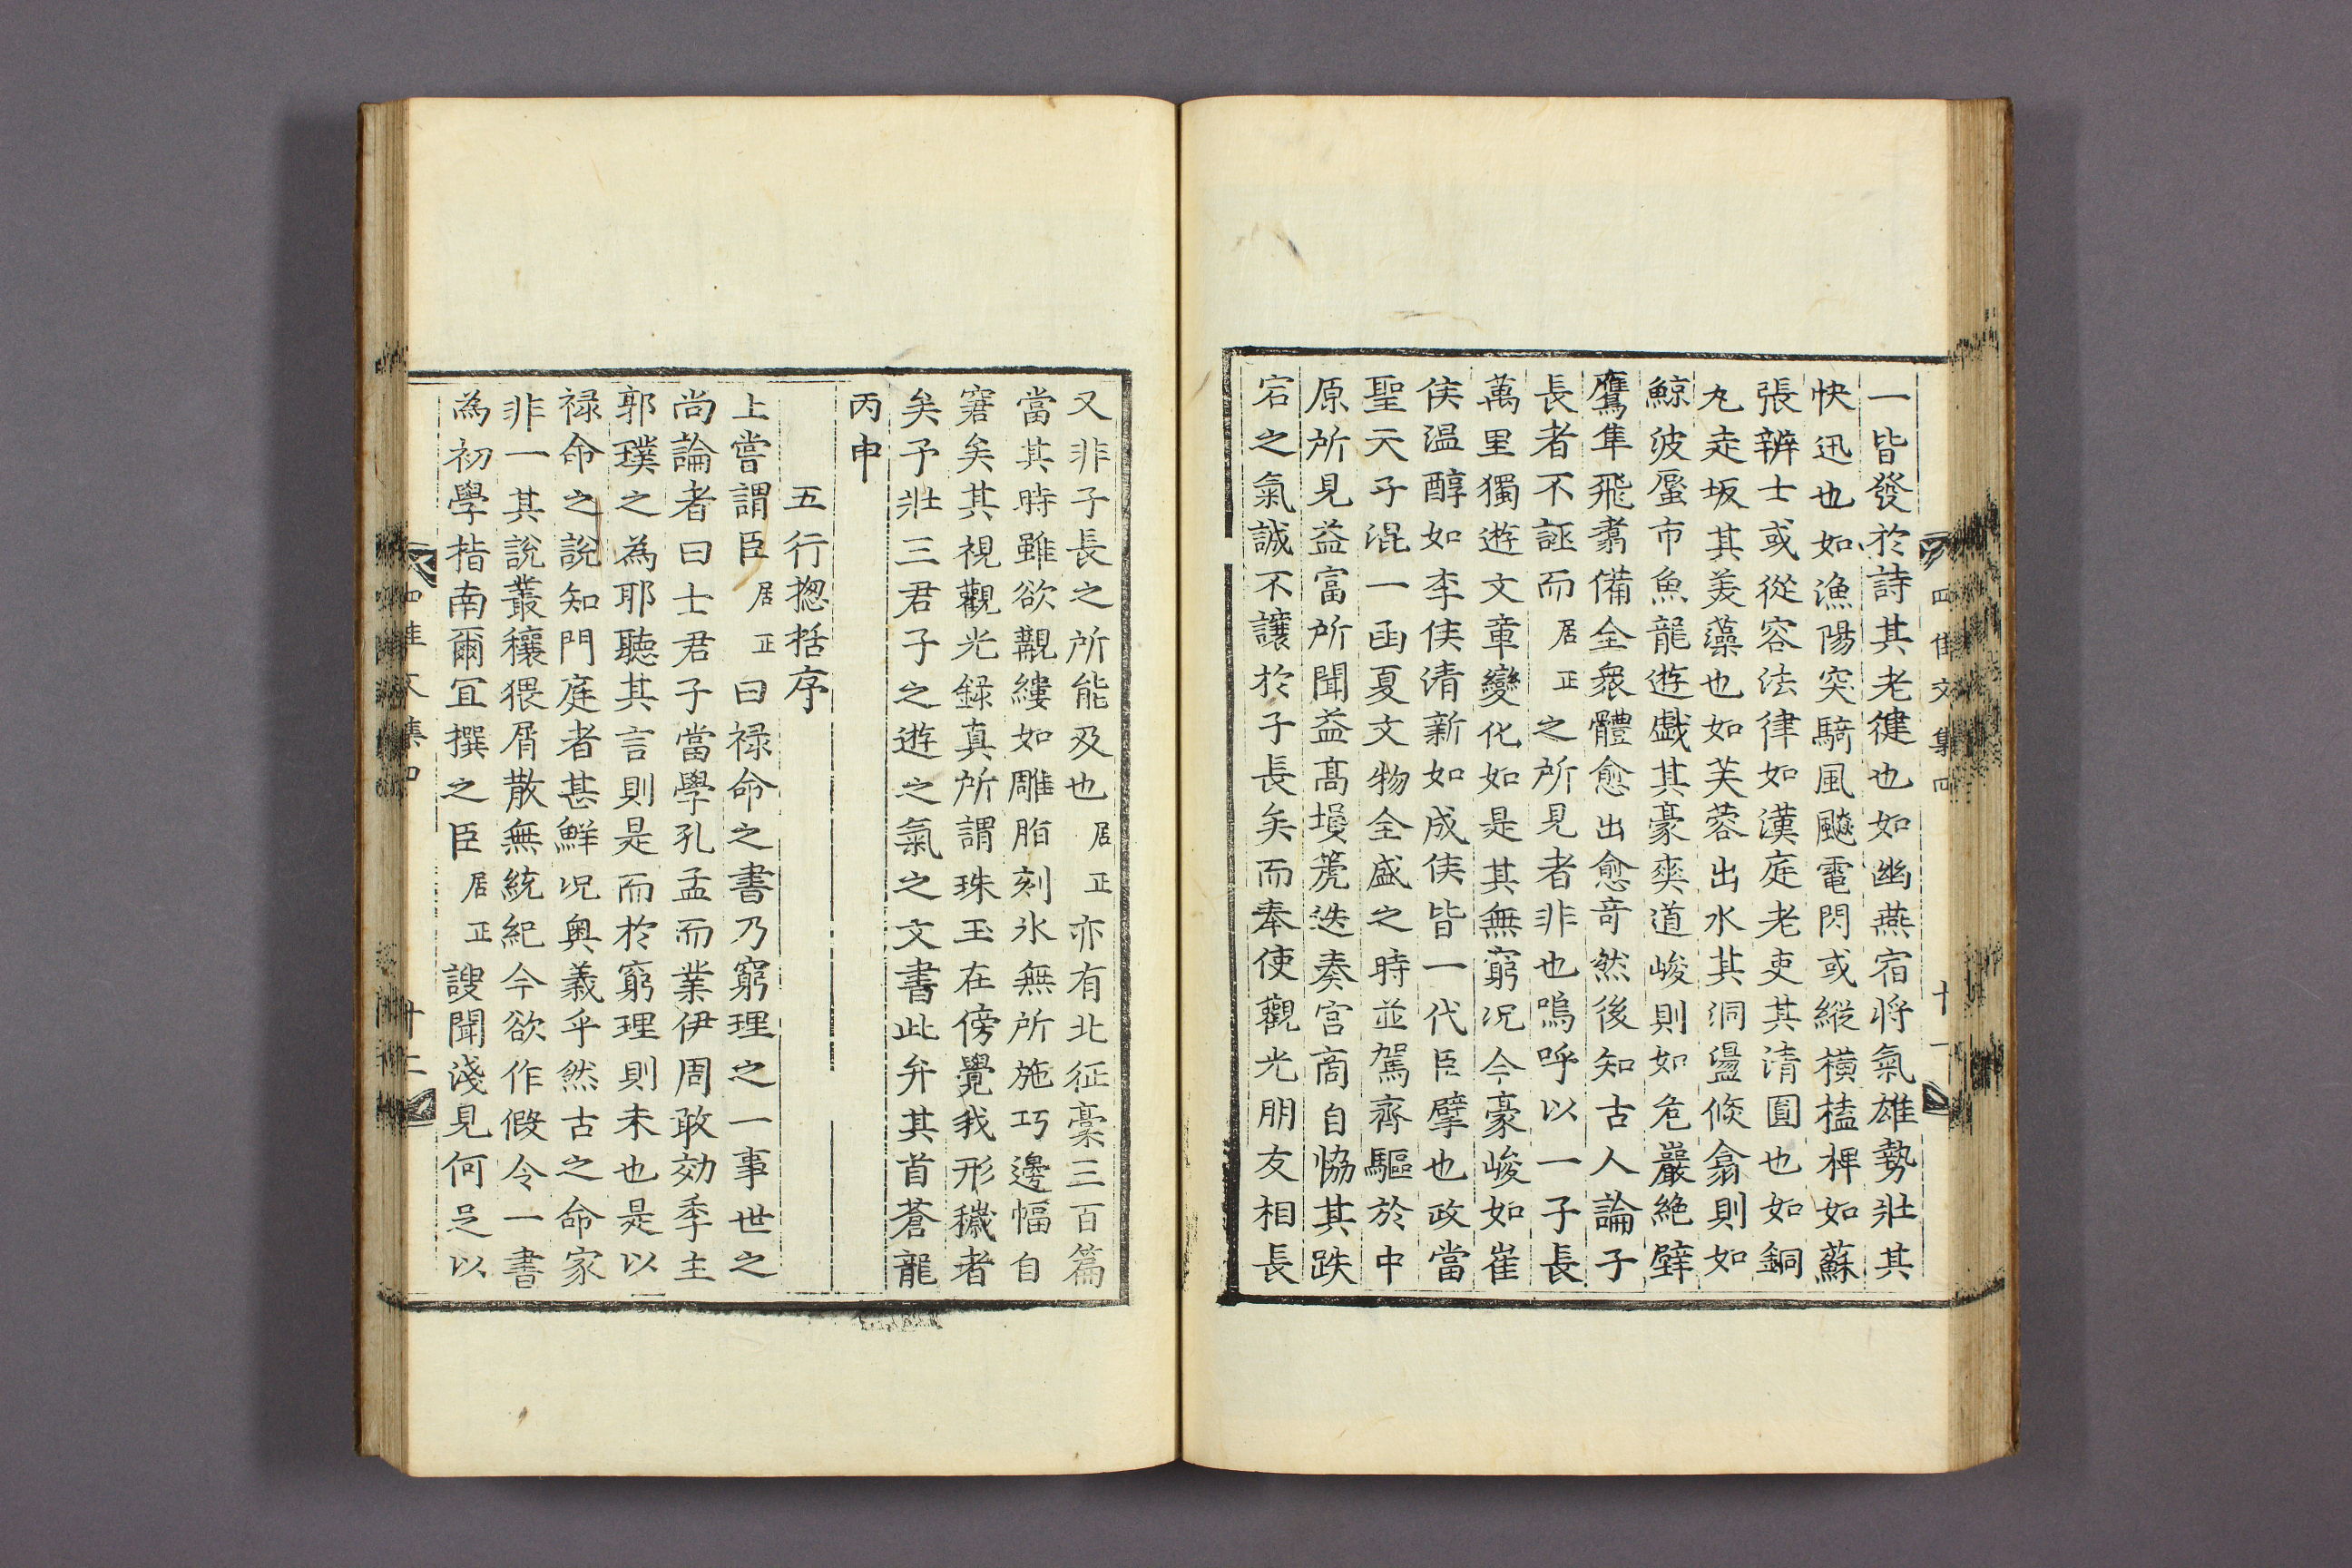 四佳文集四
十一
一皆發於詩其老健也如幽燕宿將氣雄勢壯其
快迅也如漁陽突騎風飈電閃或縱橫榼椑如蘇
張辨士或從容法律如漢庭老吏其清圓也如銅
丸走坂其美藻也如芙蓉出水其洞盪倐翕則如
鯨波蜃市魚龍遊戱其豪爽遒峻則如危巖絶壁
鷹隼飛翥備全衆體愈出愈竒然後知古人論子
長者不誣而居正之所見者非也嗚呼以一子長
萬里獨遊文章變化如是其無窮况今豪峻如崔
侯温醇如李侯清新如成侯皆一代臣擘也政當
聖天子混一凾夏文物全盛之時並駕齊驅於中
原所見益富所聞益高塤箎迭奏宫商自恊其跌
宕之氣誠不讓於子長矣而奉使觀光朋友相長
又非子長之所能及也居正亦有北征藁三百篇
當其時雖欲覼縷如雕脂刻氷無所施巧邊幅自
窘矣其視觀光録真所謂珠玉在傍覺我形穢者
矣予壯三君子之遊之氣之文書此弁其首蒼龍
丙申
五行揔括序
上嘗謂臣居正曰禄命之書乃窮理之一事世之
尚論者曰士君子當學孔孟而業伊周敢効季主
郭璞之為耶聽其言則是而於窮理則未也是以
禄命之說知門庭者甚鮮况奥義乎然古之命家
非一其說叢穰猥屑散無統紀今欲作假令一書
為初學指南爾冝撰之臣居正謏聞淺見何足以
十二